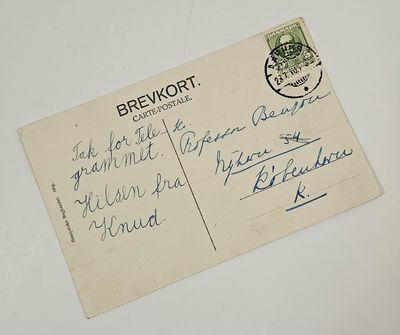 BREVKORT.
CARTE-POSTALE.
Tak for Tele-
grammet.
Hilsen fra
Knud.
Hr.
Professor Bentzon
Nyhavn 54
København
K.
DANMARK
AARHUS